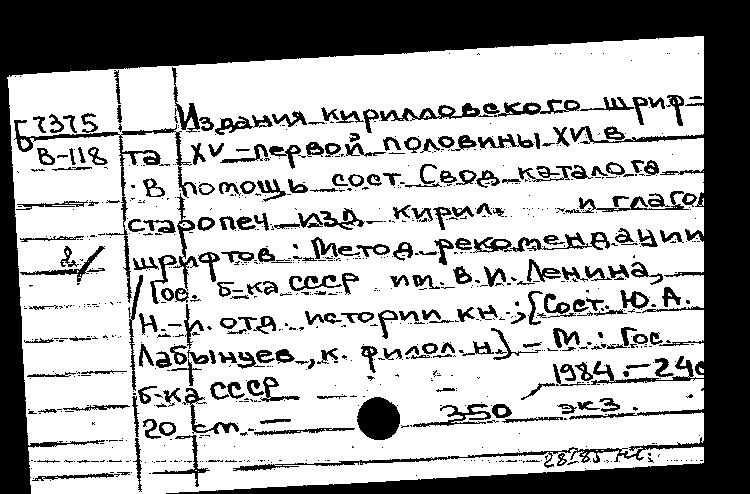 Б7375
В-118
Издания кирилловского шриф-
та XV – первой половины XVI в.
: В помощь сост. Свод. каталога
старопеч. изд. кирил. и глагол
шрифтов : Метод. рекомендации
/ Гос. б-ка СССР им. В.И. Ленина,
Н.-и. отд. истории кн.; [Сост. Ю.А.
Лабынцев, к. филол. н.] – М. : Гос.
б-ка СССР 1984. – 24с
20 см. – 350 экз.